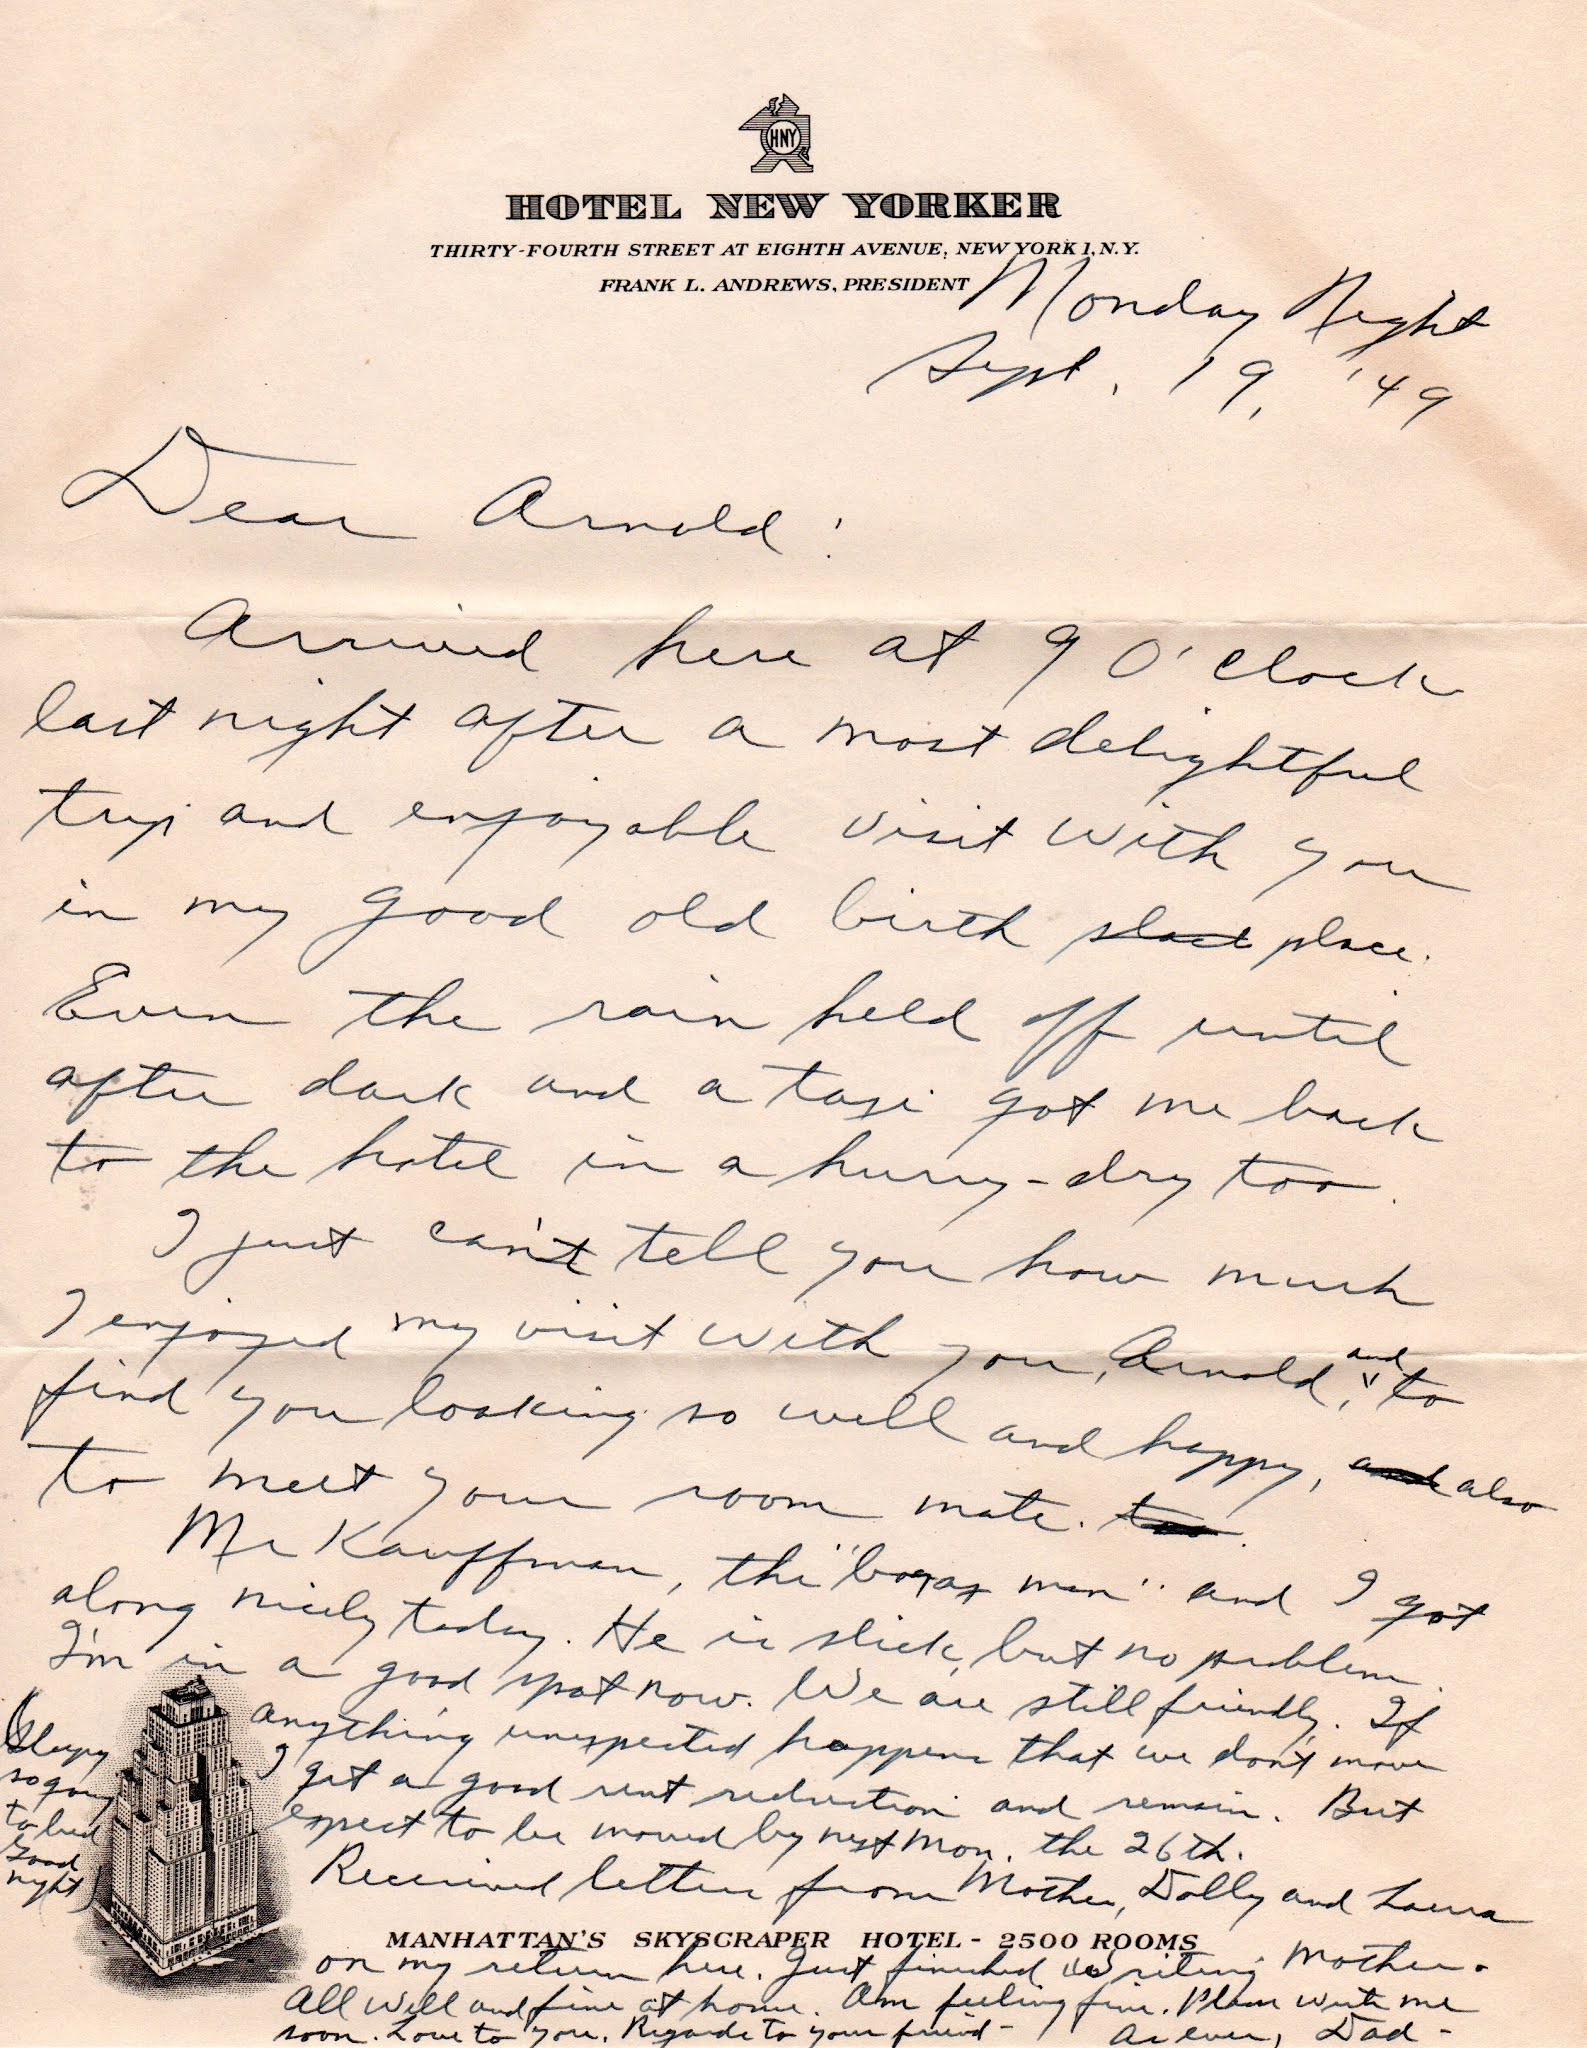 HNY
HOTEL NEW YORKER
THIRTY-FOURTH STREET AT EIGHTH AVENUE, NEW YORK 1, N.Y.
FRANK L. ANDREWS, PRESIDENT
Monday Night
Sept. 19, '49
Dear Arnold:
Arrived here at 9 O'Clock
last night after a most delightful
trip and enjoyable visit with you
in my good old birth place.
Even the rain held off until
after dark and a taxi got me back
to the hotel in a hurry - dry too.
I just can't tell you how much
I enjoyed my visit with you, Arnold, and to
find you looking so well and happy, and also
to meet your room mate. too.
Mr Kauffman, the " man" and I got
along nicely today. He is slick, but no problem.
I'm in a good spot now. We are still friendly. If
anything unexpected happens that we don't move
I get a good rent reduction and remain. But
expect to be moved by next Mon. the 26th.
Received letters from Mother, Dolly and Laura
MANHATTAN'S SKYSCRAPER HOTEL - 2500 ROOMS
on my return here. Just finished writing Mother.
All well and fine at home. Am feeling fine. Please write me
soon. Love to you. Regards to your friend -
As ever, Dad -
(Sleepy
so going
to bed
Good
night)